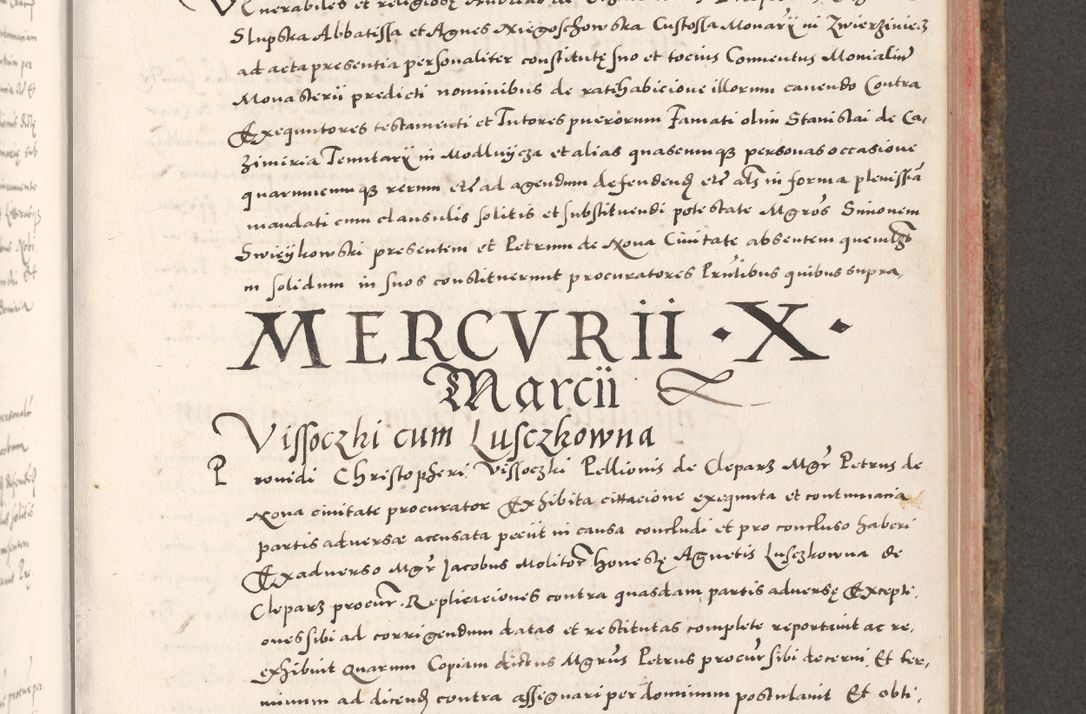 Slupska Abbatissa et Agnes Niegoschowska Custossa Monarÿ in Zwierziniecz
ad acta presentia personaliter constitutę suo et tocius Conventus Monialiũ
Monasterii predicti nominibus de ratihabicione illorum cavendo Contra
Exequutores testamenti et Tutores puerorum Famati olim Stanislai de Ca,
zimeria Tenutarÿ in Modlniÿcza et alias quascumqz personas occasione
quarumcumqz rerum etc̃ ad agendum defendend etc̃ als̃ in forma plenissĩa
mandati cum clausulis solitis et substituendi potestate Mgrõs Simonem
Swieÿkowski presentem et Petrum de Nova Civitate absentem quemlzb
in solidum in suos constituerunt procuratores Prñtibus quibus supra,
MERCVRII · X ·
Marcii
Vissoczki cum Lusczkowna
Providi Christopheri Vissoczki Pellionis de Cleparz Mgr̃ Petrus de
Nova civitate procurator Exhibita cittacione exequuta et contumacia
partis adversae accusata peciit in causa concludi et pro concluso haberi
Ex adverso Mgr̃ Jacobus Molitor honestę Agnetis Lusczkowna de
Cleparz procur̃. Replicaciones contra quasdam partis adversę Excepti,
ones sibi ad corrigendum datas et restitutas complete reportavit ac re,
exhibuit Quarum Copiam dictus Mgrũs Petrus procur̃ sibi decerni Et ter,
minum ad dicend contra assignari per dominum postulavit Et obti,